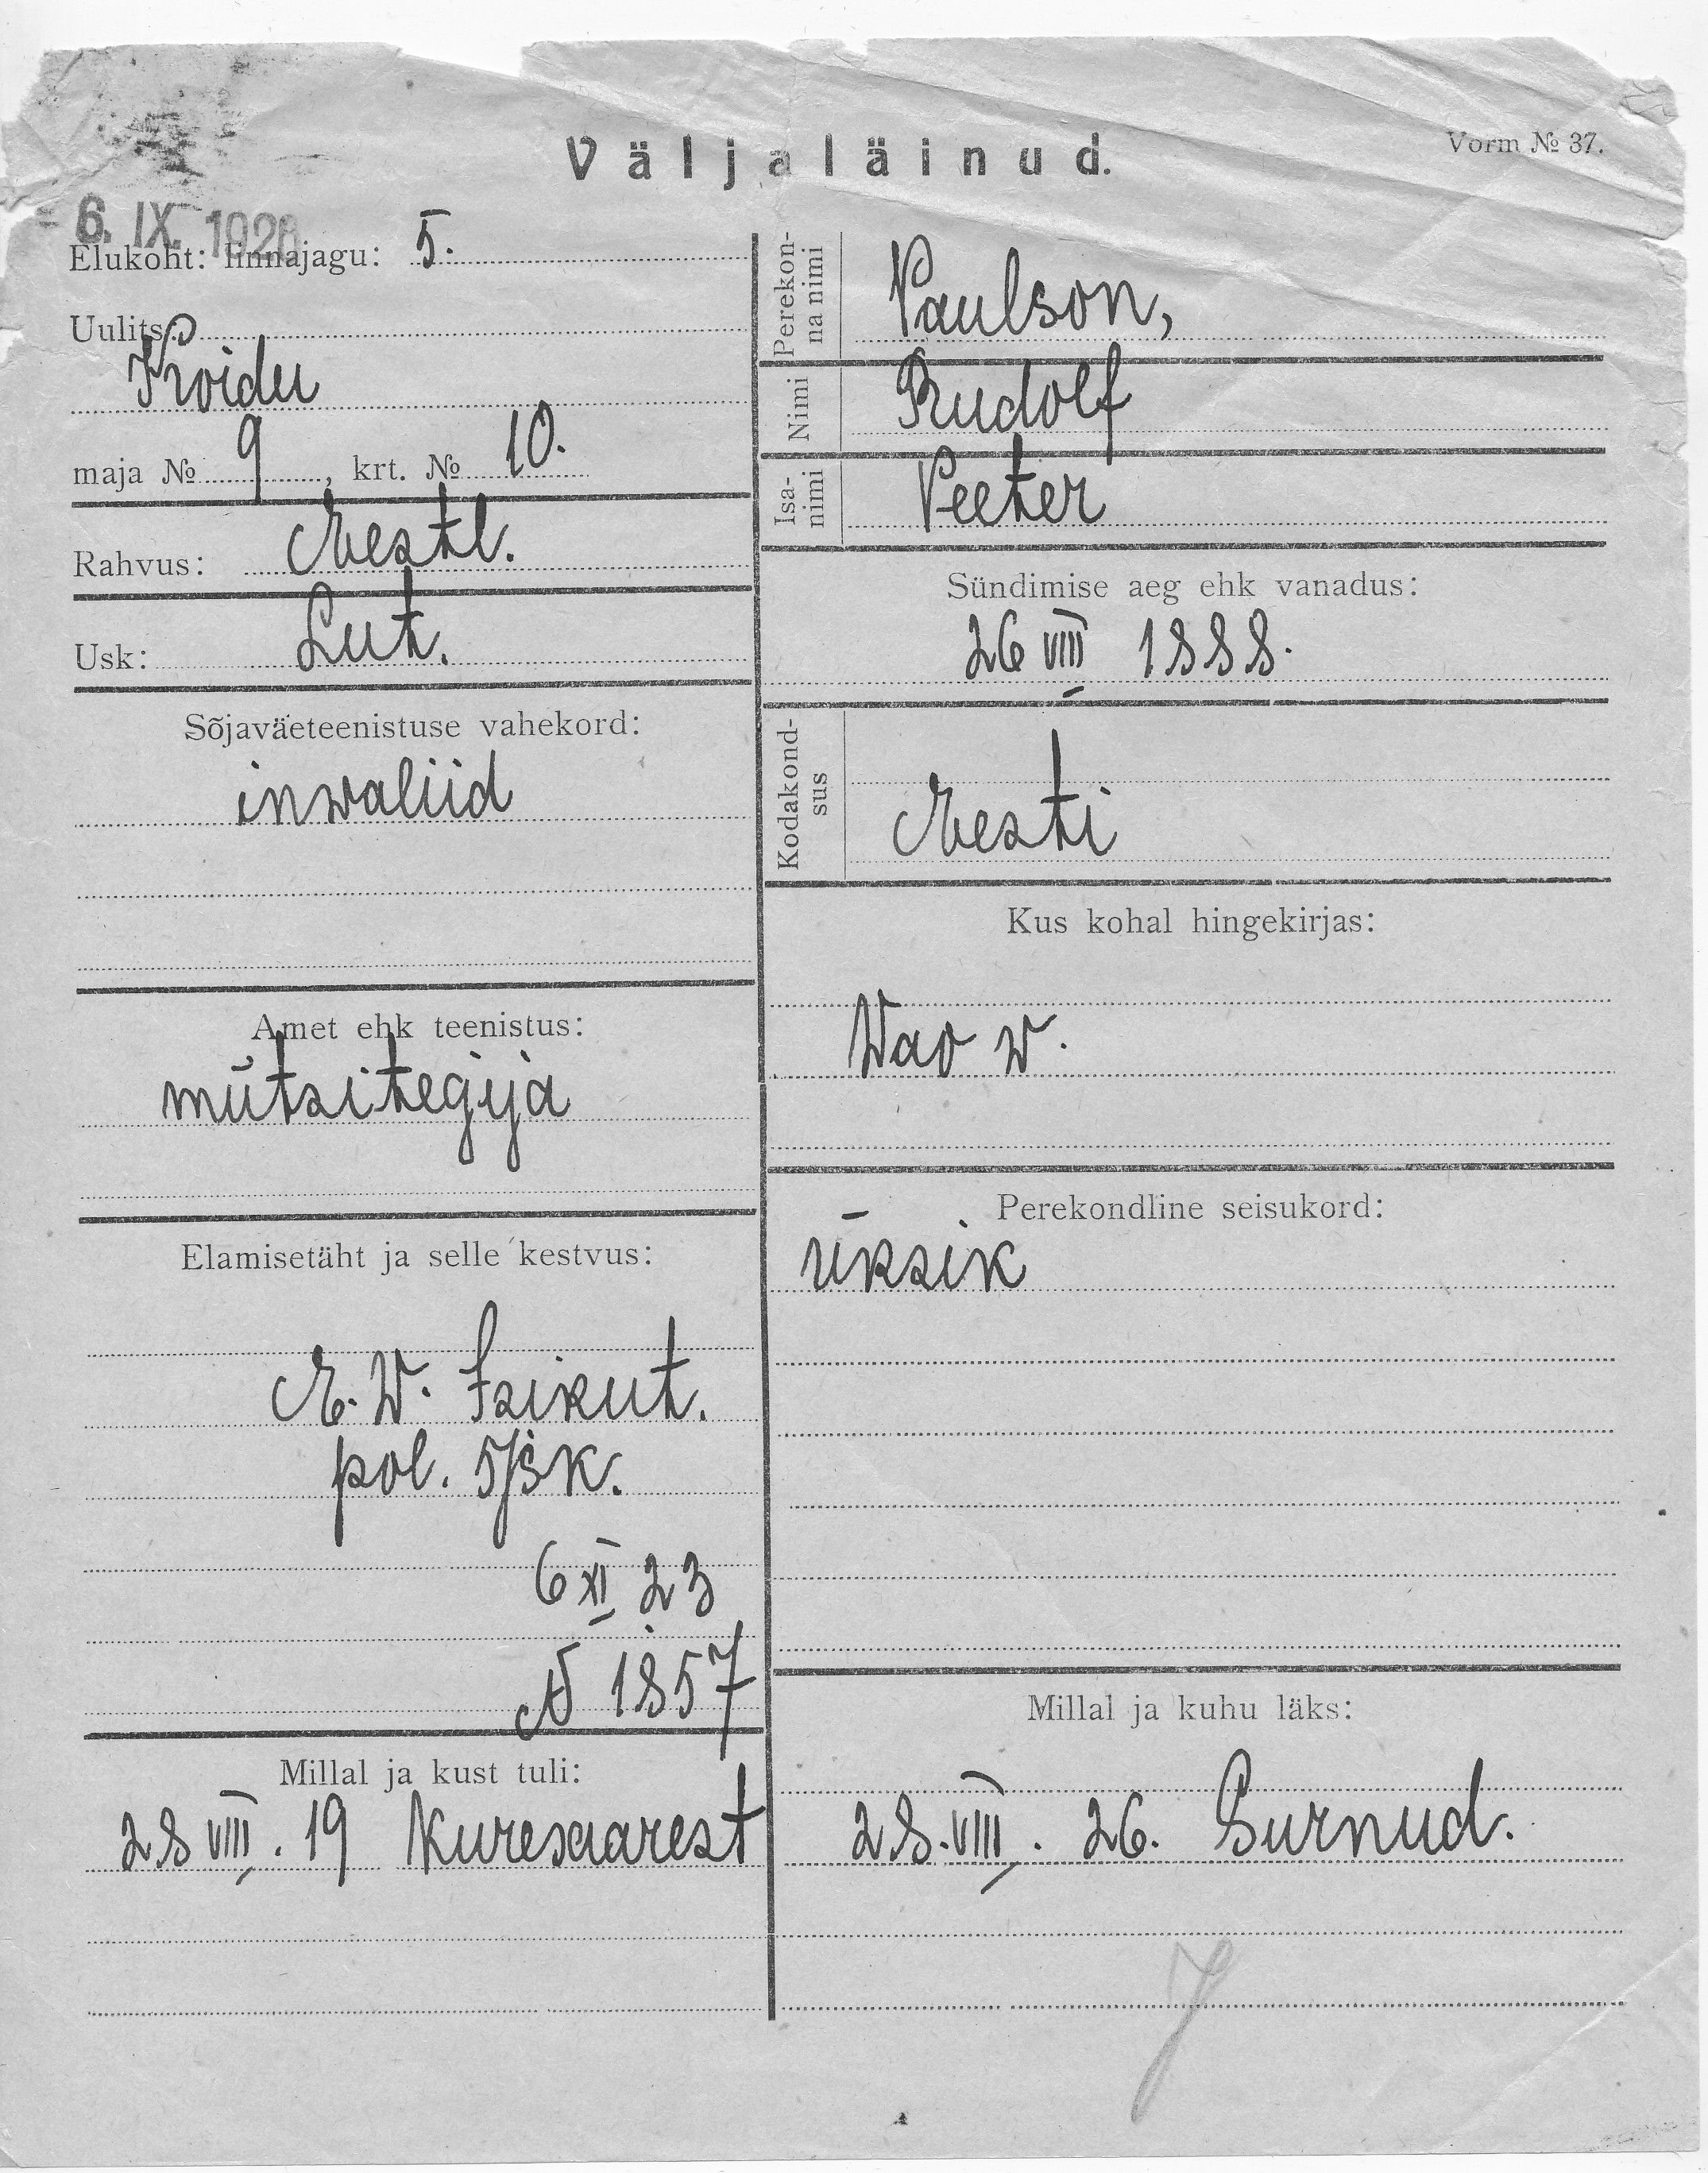 Väljaläinud.
Vorm № 37.
6. IX. 1926
Elukoht: linnajagu: 5.
Uulits
Koidu
maja № 9, krt. № 10.
Rahvus: Eestl.
Usk: Lut.
Sõjaväeteenistuse vahekord:
inwaliid
Amet ehk teenistus:
mütsitegija
Elamisetäht ja selle kestvus:
E. W. Isikut.
pol. 5/jsk.
6 XI 23
№ 1857
Millal ja kust tuli:
28 VIII. 19 Kuresaarest
Perekon-
na nimi
Paulson,
Nimi
Rudolf
Isa-
nimi
Peeter
Sündimise aeg ehk vanadus:
26 VIII 1888.
Kodakond-
sus
Eesti
Kus kohal hingekirjas:
Wao w.
Perekondline seisukord:
üksik
Millal ja kuhu läks:
28. VIII. 26. Surnud.